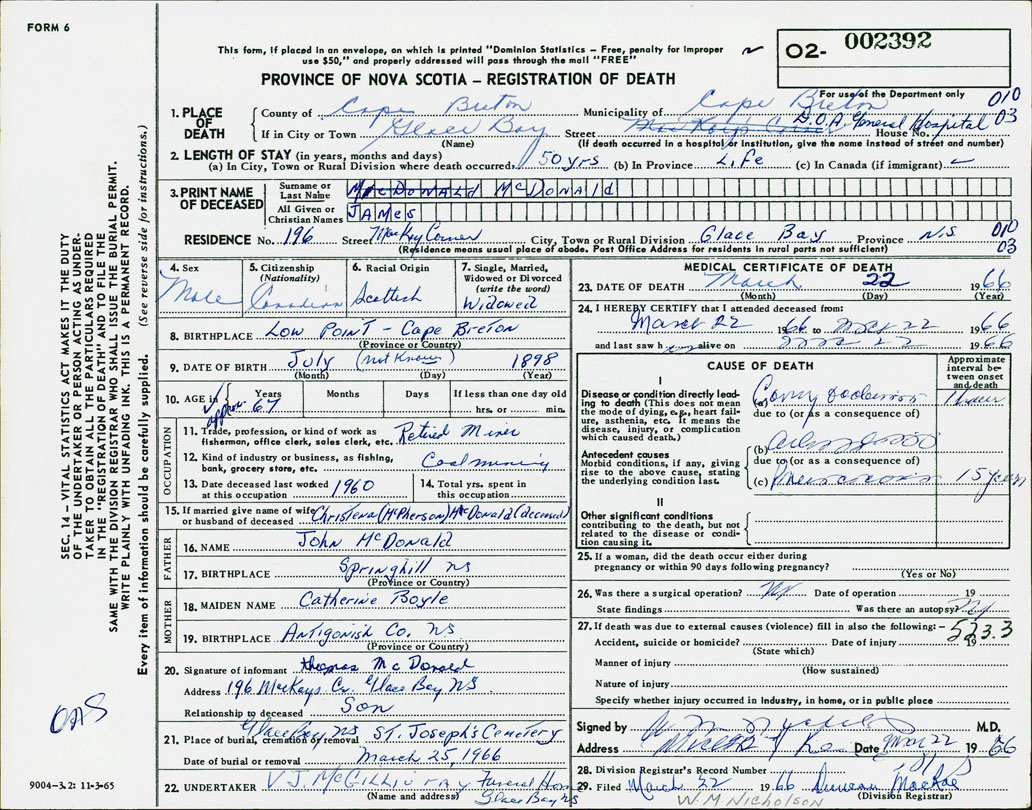 FORM 6
This form, if placed in an envelope, on which is printed "Dominion Statistics – Free, penalty for improper
use $50," and properly addressed will pass through the mail "FREE"
PROVINCE OF NOVA SCOTIA – REGISTRATION OF DEATH
O2- 002392
For use of the Department only
010
03
1. PLACE OF DEATH
County of Cape Breton Municipality of Cape Breton
If in City or Town Glace Bay Street D.O.A. General Hospital House No.
(Name) (If death occurred in a hospital or institution, give the name instead of street and number)
2. LENGTH OF STAY (in years, months and days)
(a) In City, Town or Rural Division where death occurred. 50 yrs (b) In Province Life (c) In Canada (if immigrant)
3. PRINT NAME OF DECEASED
Surname or Last Name MacDONALD McDONALd
All Given or Christian Names JAMes
RESIDENCE No. 196 Street MacKay Corner City, Town or Rural Division Glace Bay Province N.S
(Residence means usual place of abode. Post Office Address for residents in rural parts not sufficient)
010
03
4. Sex Male
5. Citizenship (Nationality) Canadian
6. Racial Origin Scottish
7. Single, Married, Widowed or Divorced (write the word) Widowed
8. BIRTHPLACE Low Point – Cape Breton
(Province or Country)
9. DATE OF BIRTH July (not Known) 1898
(Month) (Day) (Year)
10. AGE in Years Months Days If less than one day old
approx. 67 hrs. or min.
OCCUPATION
11. Trade, profession, or kind of work as fisherman, office clerk, sales clerk, etc. Retired Miner
12. Kind of industry or business, as fishing, bank, grocery store, etc. Coal mining
13. Date deceased last worked at this occupation 1960
14. Total yrs. spent in this occupation
15. If married give name of wife or husband of deceased Christena (McPherson) McDonald (deceased)
FATHER
16. NAME John McDonald
17. BIRTHPLACE Springhill NS
(Province or Country)
MOTHER
18. MAIDEN NAME Catherine Boyle
19. BIRTHPLACE Antigonish Co. NS
(Province or Country)
20. Signature of informant Thomas McDonald
Address 196 MacKays Cr. Glace Bay NS
Relationship to deceased Son
21. Place of burial, cremation or removal Glace Bay NS ST. Joseph's Cemetery
Date of burial or removal March 25, 1966
22. UNDERTAKER V.J. McGILLIVRAY Funeral Home
(Name and address) Glace Bay NS
MEDICAL CERTIFICATE OF DEATH
23. DATE OF DEATH March 22 1966
(Month) (Day) (Year)
24. I HEREBY CERTIFY that I attended deceased from:
March 22 1966 to 22 1966
and last saw h alive on 22 1966
CAUSE OF DEATH
Approximate interval between onset and death
I
Disease or condition directly leading to death (This does not mean the mode of dying, e.g., heart failure, asthenia, etc. It means the disease, injury, or complication which caused death.)
(a)
due to (or as a consequence of)
Antecedent causes
Morbid conditions, if any, giving rise to the above cause, stating the underlying condition last.
(b)
due to (or as a consequence of)
(c) 15 years
II
Other significant conditions
contributing to the death, but not related to the disease or condition causing it.
25. If a woman, did the death occur either during
pregnancy or within 90 days following pregnancy?
(Yes or No)
26. Was there a surgical operation? Date of operation 19
State findings Was there an autopsy?
27. If death was due to external causes (violence) fill in also the following: –
523.3
Accident, suicide or homicide? Date of injury 19
(State which)
Manner of injury
(How sustained)
Nature of injury
Specify whether injury occurred in industry, in home, or in public place
Signed by M.D.
Address Date 22 1966
28. Division Registrar's Record Number
29. Filed March 22 1966 Duncan MacRae
(Division Registrar)
W. M NICHOLSON
SEC. 14 – VITAL STATISTICS ACT MAKES IT THE DUTY
OF THE UNDERTAKER OR PERSON ACTING AS UNDER-
TAKER TO OBTAIN ALL THE PARTICULARS REQUIRED
IN THE "REGISTRATION OF DEATH" AND TO FILE THE
SAME WITH THE DIVISION REGISTRAR WHO SHALL ISSUE THE BURIAL PERMIT.
WRITE PLAINLY WITH UNFADING INK. THIS IS A PERMANENT RECORD.
Every item of information should be carefully supplied. (See reverse side for instructions.)
OAS
9004–3.2: 11-3-65